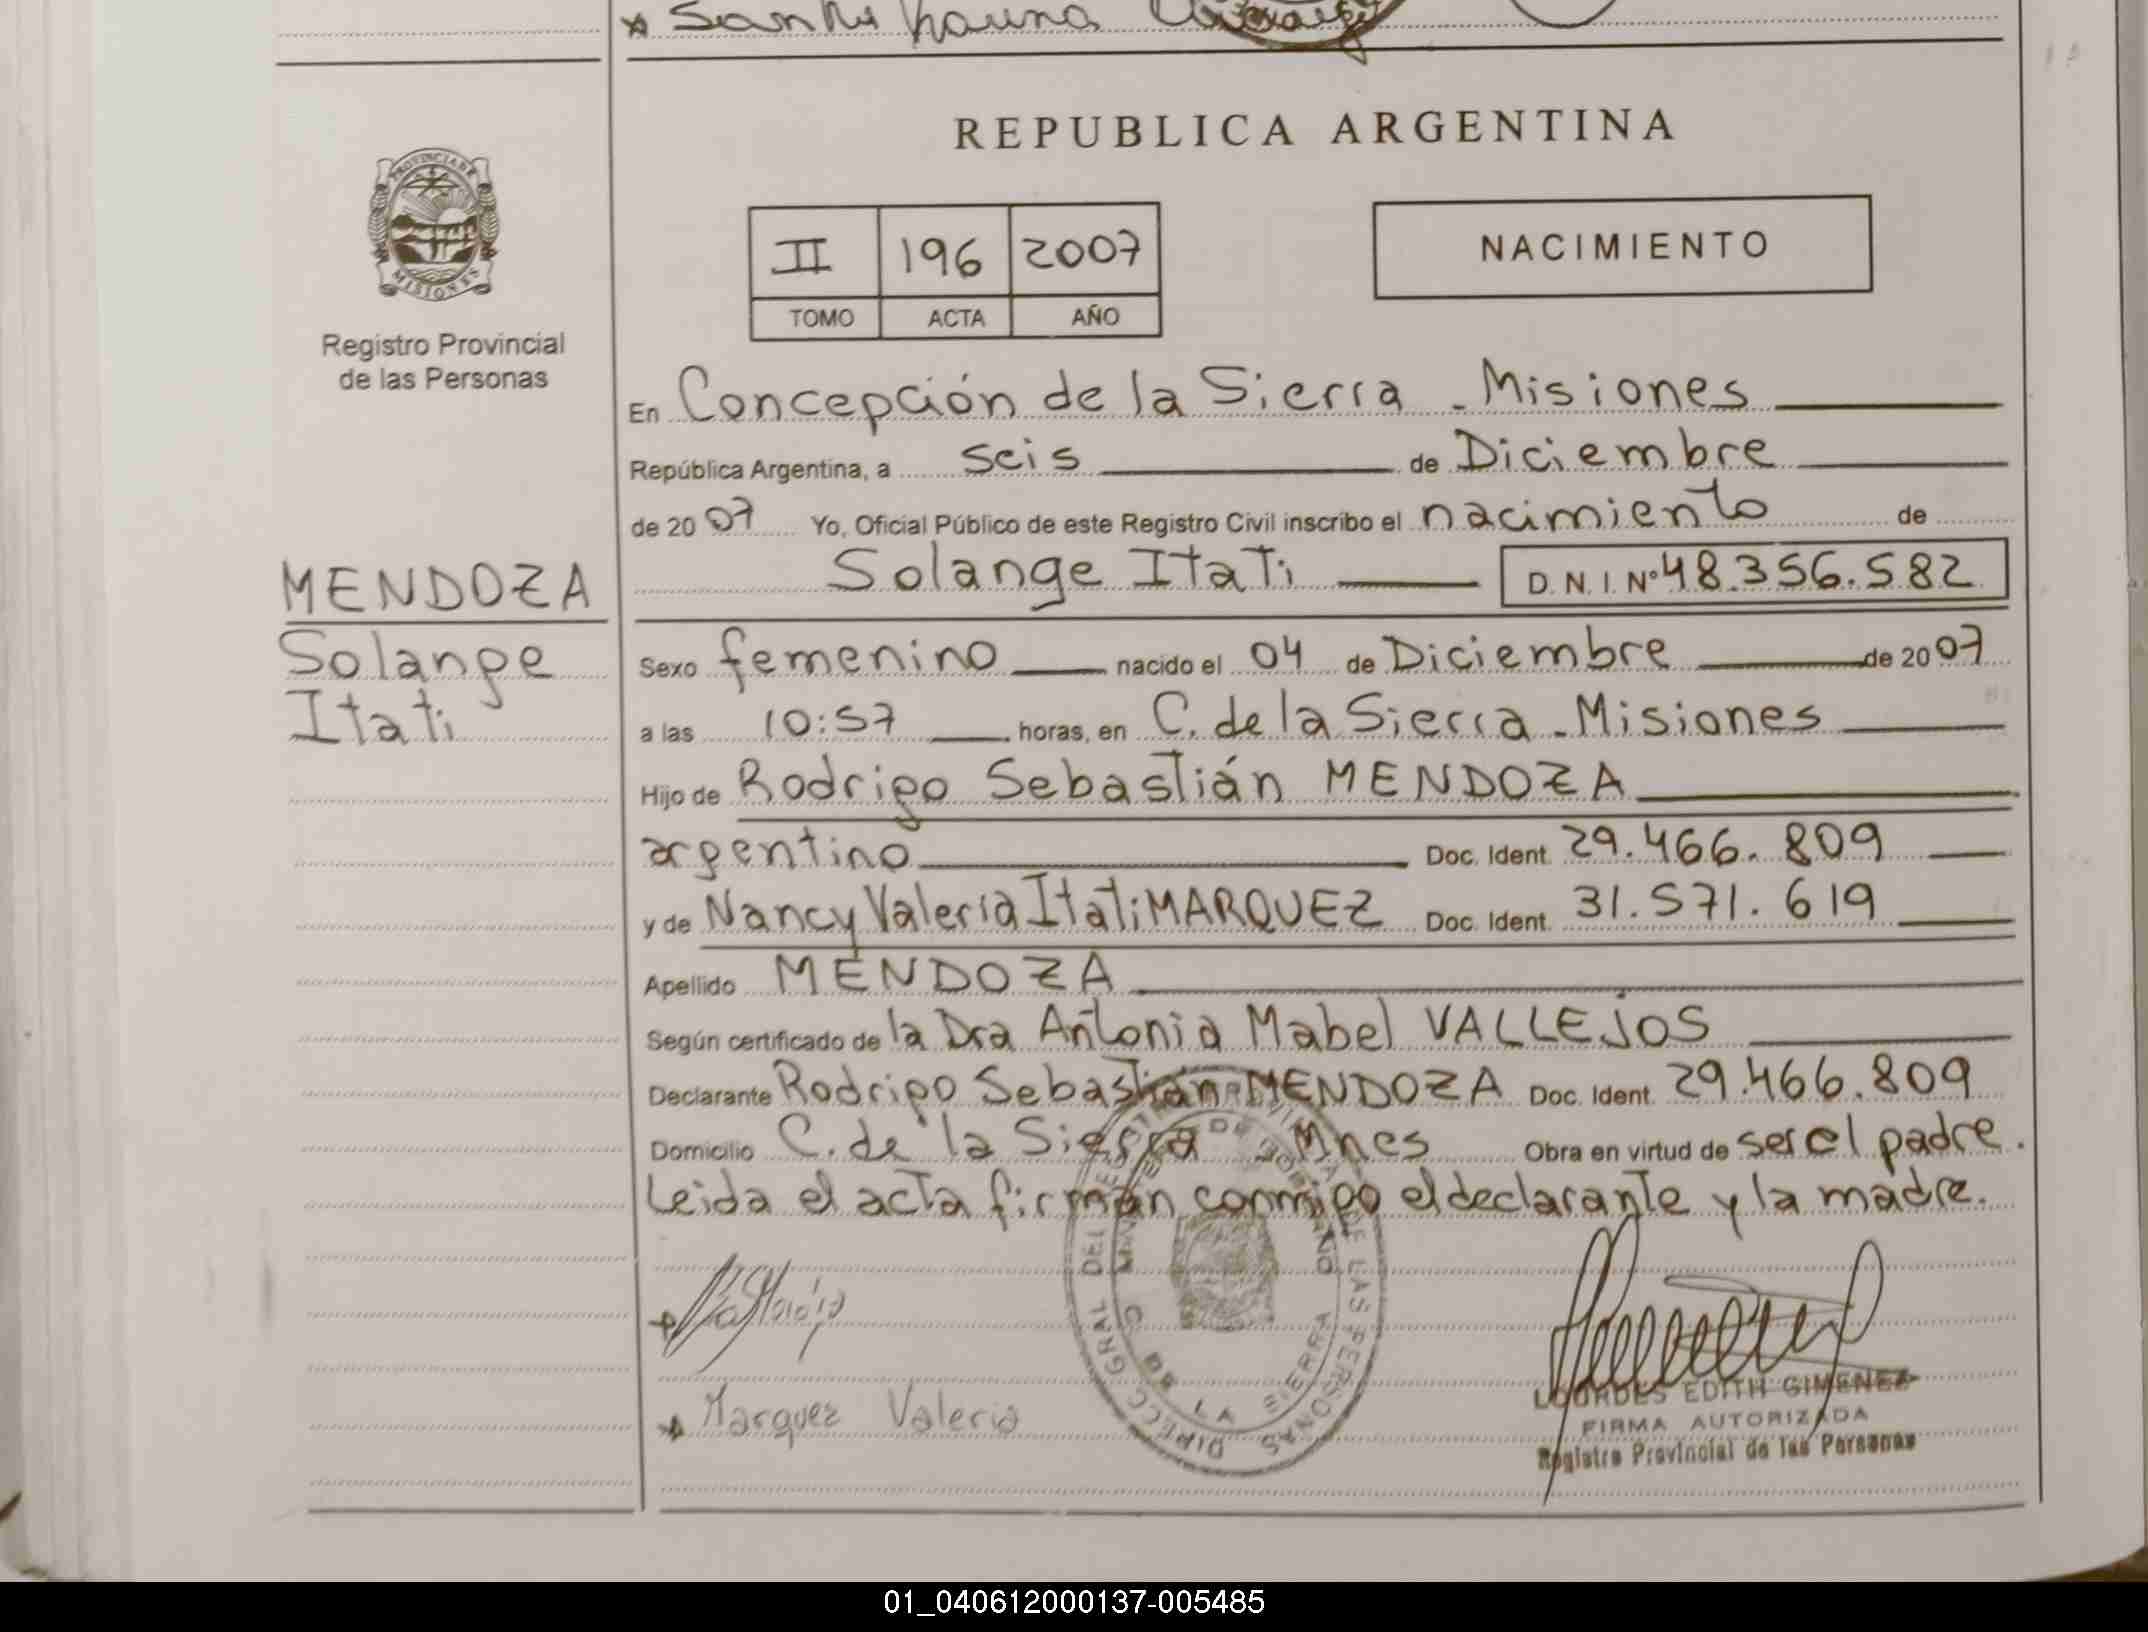 REPUBLICA ARGENTINA
PROVINCIA DE
MISIONES
Registro Provincial
de las Personas
II 196 2007
TOMO ACTA AÑO
NACIMIENTO
En Concepción de la Sierra - Misiones
República Argentina, a seis de Diciembre
de 2007 Yo, Oficial Público de este Registro Civil inscribo el nacimiento de
Solange Itati D.N.I. Nº 48.356.582
MENDOZA
Solange
Itati
Sexo femenino nacido el 04 de Diciembre de 2007
a las 10:57 horas, en C. de la Sierra - Misiones
Hijo de Rodrigo Sebastián MENDOZA
argentino Doc. Ident. 29.466.809
y de Nancy Valeria Itati MARQUEZ Doc. Ident. 31.571.619
Apellido MENDOZA
Según certificado de la Dra Antonia Mabel VALLEJOS
Declarante Rodrigo Sebastián MENDOZA Doc. Ident. 29.466.809
Domicilio C. de la Sierra - Mnes Obra en virtud de ser el padre.
Leida el acta firman conmigo el declarante y la madre.
Marquez Valeria
DIRECC GRAL DEL DE LAS PERSONAS
C DE LA SIERRA
LOURDES EDITH GIMENEZ
FIRMA AUTORIZADA
Registro Provincial de las Personas
01_040612000137-005485